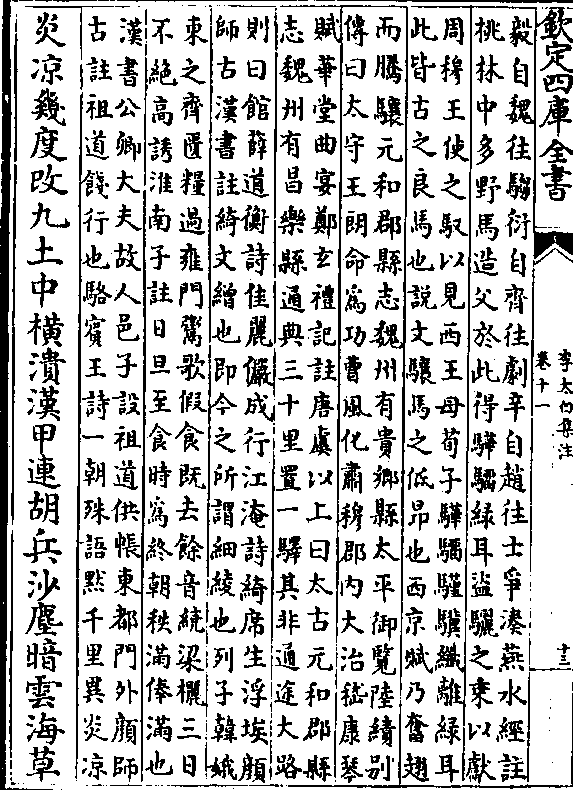 欽定四庫全書
李太白集注
卷十一
十三
毅自魏往騶衍自齊往劇辛自趙往士爭湊燕水經註
桃林中多野馬造父於此得驊騮緑耳盜驪之乘以獻
周穆王使之馭以見西王母荀子驊騮騹驥纖離緑耳
此皆古之良馬也説文驤馬之低昂也西京賦乃奮翅
而騰驤元和郡縣志魏州有貴鄉縣太平御覽陸績别
傳曰太守王朗命為功曹風化肅穆郡内大治嵇康琴
賦華堂曲宴鄭玄禮記註唐虞以上曰太古元和郡縣
志魏州有昌樂縣通典三十里置一驛其非通途大路
則曰館薛道衡詩佳麗儼成行江淹詩綺席生浮埃顔
師古漢書註綺文繒也即今之所謂細綾也列子韓娥
東之齊匱糧過雍門鬻歌假食既去餘音繞梁欐三日
不絶高誘淮南子註日旦至食時為終朝秩滿俸滿也
漢書公卿大夫故人邑子設祖道供帳東都門外顔師
古註祖道餞行也駱賓王詩一朝殊語默千里異炎凉
炎凉幾度改九土中橫潰漢甲連胡兵沙塵暗雲海草